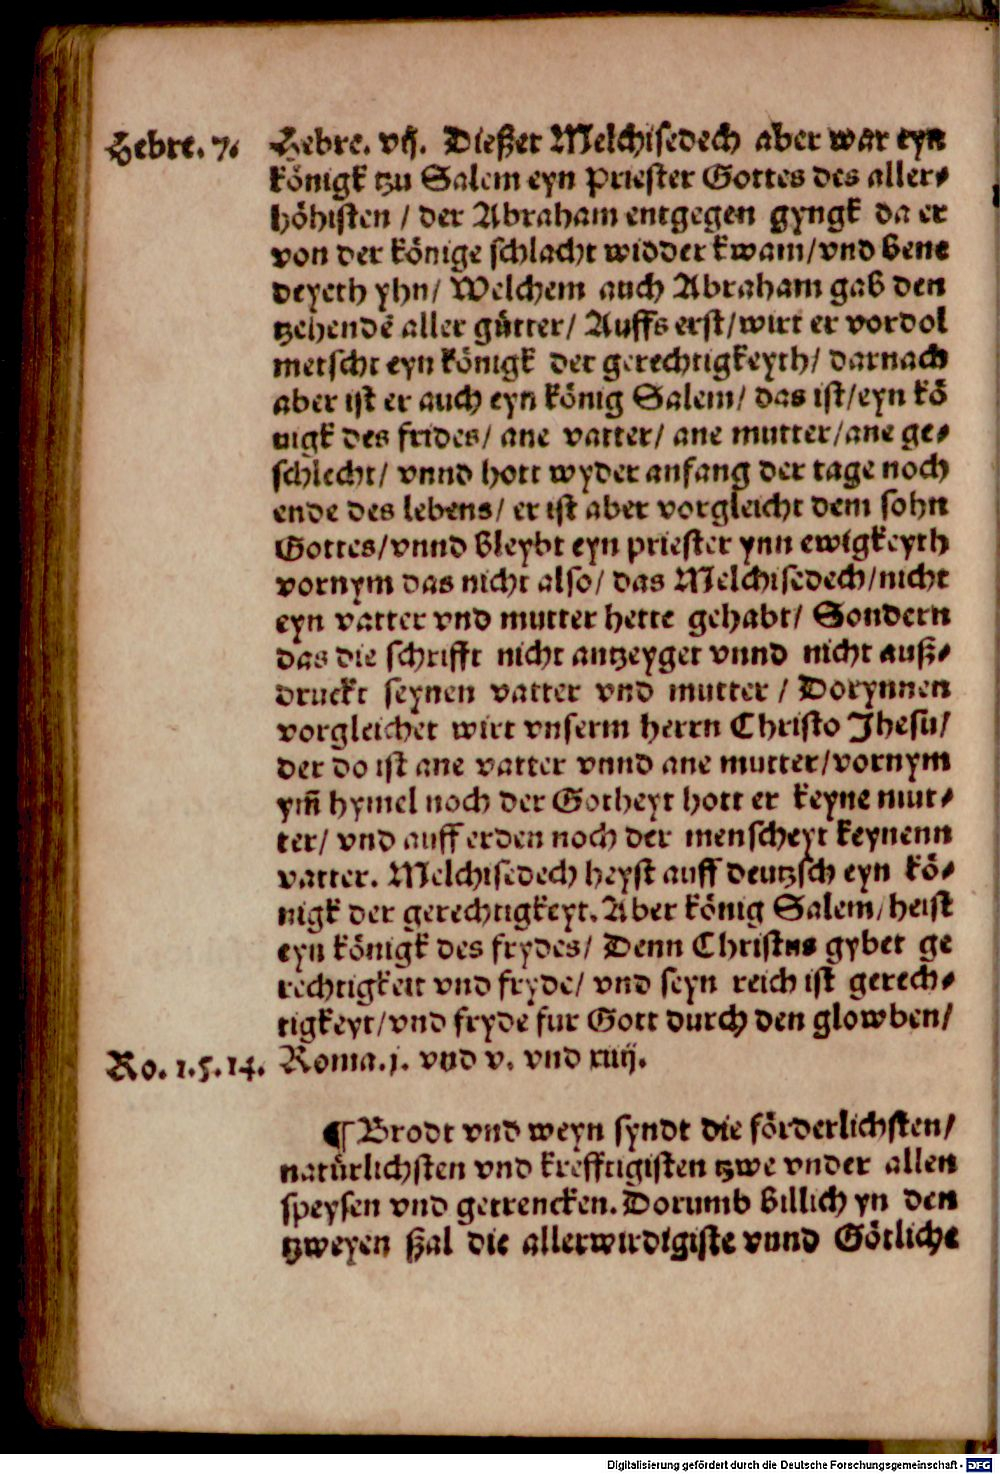 Hebre. 7.
Hebre. vij. Dießer Melchisedech aber war eyn
königk tzu Salem eyn Priester Gottes des aller⸗
höhisten / der Abraham entgegen gyngk da er
von der könige schlacht widder kwam/ vnd bene
deyeth yhn/ Welchem auch Abraham gab den
tzehendē aller gütter/ Auffs erst/ wirt er vordol
metscht eyn königk der gerechtigkeyth/ darnach
aber ist er auch eyn könig Salem/ das ist/ eyn kö
nigk des frides/ ane vatter/ ane mutter/ ane ge⸗
schlecht/ vnnd hott wyder anfang der tage noch
ende des lebens/ er ist aber vorgleicht dem sohn
Gottes/ vnnd bleybt eyn priester ynn ewigkeyth
vornym das nicht also/ das Melchisedech/ nicht
eyn vatter vnd mutter hette gehabt/ Sondern
das die schrifft nicht antzeyget vnnd nicht auß⸗
druckt seynen vatter vnd mutter / Dorynnen
vorgleichet wirt vnserm herrn Christo Jhesu/
der do ist ane vatter vnnd ane mutter/ vornym
ym̄ hymel noch der Gotheyt hott er keyne mut⸗
ter/ vnd auff erden noch der menscheyt keynenn
vatter. Melchisedech heyst auff deutzsch eyn kö⸗
nigk der gerechtigkeyt. Aber könig Salem/ heist
eyn königk des frydes/ Denn Christus gybet ge
rechtigkeit vnd fryde/ vnd seyn reich ist gerech⸗
tigkeyt/ vnd fryde fur Gott durch den glowben/
Ro. 1.5.14.
Roma. j. vnd v. vnd xiiij.
¶ Brodt vnd weyn syndt die förderlichsten/
natürlichsten vnd krefftigisten tzwe vnder allen
speysen vnd getrencken. Dorumb billich yn den
tzweyen ßal die allerwirdigiste vnnd Götliche
Digitalisierung gefördert durch die Deutsche Forschungsgemeinschaft - DFG